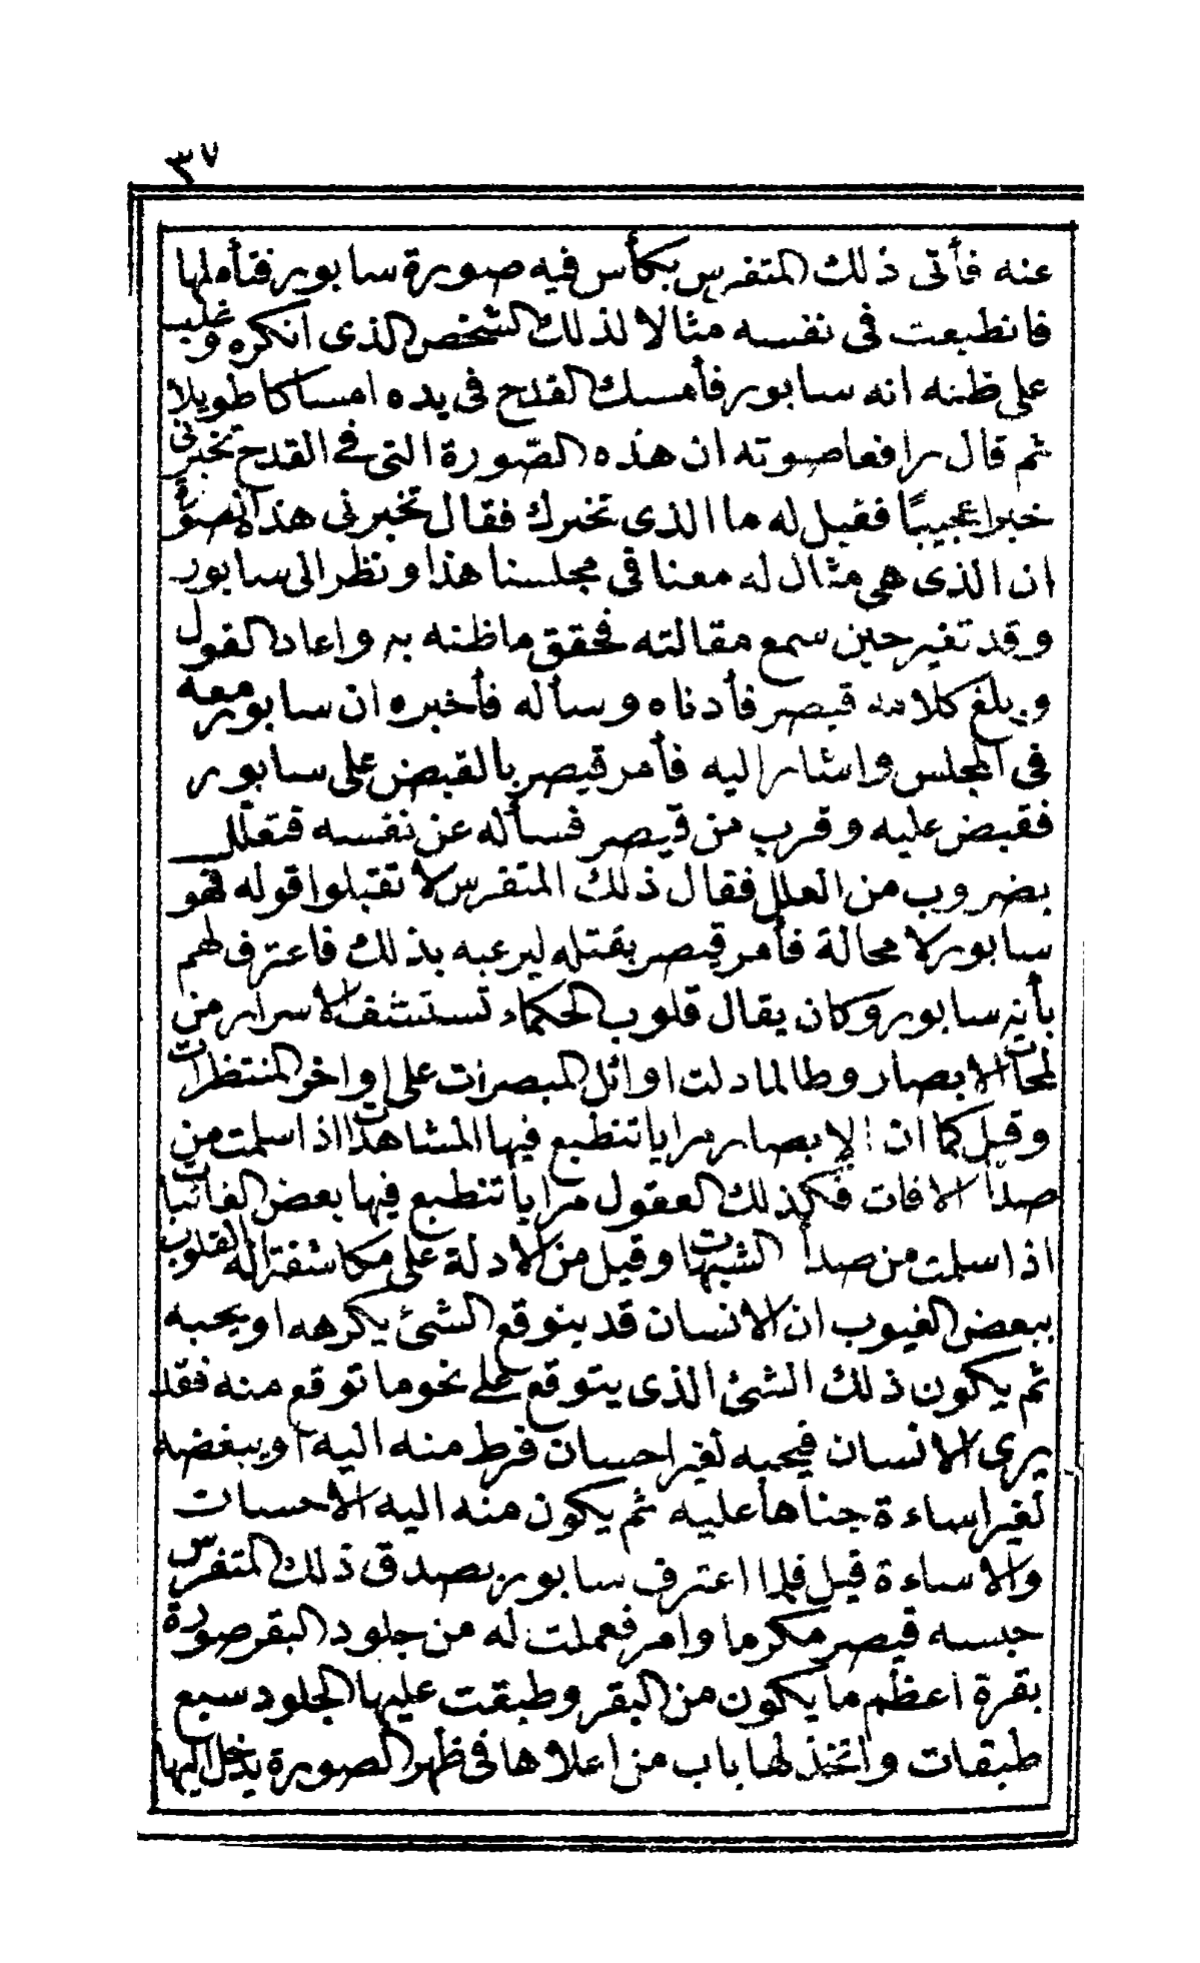 ٣٧
عنه فأتى ذلك المتفرس بكأس فيه صورة سابور فتأملها
فانطبعت فى نفسه مثالا لذلك الشخص الذى انكره وغلب
على ظنه انه سابور فأمسك القدح فى يده امساكا طويلا
ثم قال رافعا صوته ان هذه الصّورة التى فى القدح تخبرنى
خبرا عجيبًا فقيل له ما الذى تخبرك فقال تخبرنى هذه الصورة
ان الذى هى مثال له معنا فى مجلسنا هذا ونظر الى سابور
وقد تغير حين سمع مقالته فحقق ما ظنه به واعاد القول
وبلغ كلامه قيصر فأدناه وسأله فأخبره ان سابور معه
فى المجلس واشار اليه فأمر قيصر بالقبض على سابور
فقبض عليه وقرب من قيصر فسأله عن نفسه فتعلل
بضروب من العلل فقال ذلك المتفرس لا تقبلوا قوله فهو
سابور لا محالة فأمر قيصر بقتله ليرعبه بذلك فاعترف لهم
بأنه سابور وكان يقال قلوب الحكماء تستشف الاسرار من
لمحات الابصار وطالما دلت اوائل المبصرات على اواخر المنتظرات
وقيل كما ان الابصار مرايا تنطبع فيها المشاهدات اذا سلمت من
صدأ الافات فكذلك العقول مرايا تنطبع فيها بعض الغائبات
اذا سلمت من صدأ الشبهات وقيل من الادلة على مكاشفة القلوب
ببعض الغيوب ان الانسان قد يتوقع الشئ يكرهه او يحبه
ثم يكون ذلك الشئ الذى يتوقع على نحو ما توقع منه فقد
يرى الانسان فيحبه لغير احسان فرط منه اليه او يبغضه
لغير اساءة جناها عليه ثم يكون منه اليه الاحسان
والاساءة قيل فلما اعترف سابور بصدق ذلك المتفرس
حبسه قيصر مكرما وامر فعملت له من جلود البقر صورة
بقرة اعظم ما يكون من البقر وطبقت عليها الجلود سبع
طبقات واتخذ لها باب من اعلاها فى ظهر الصورة يدخل اليها